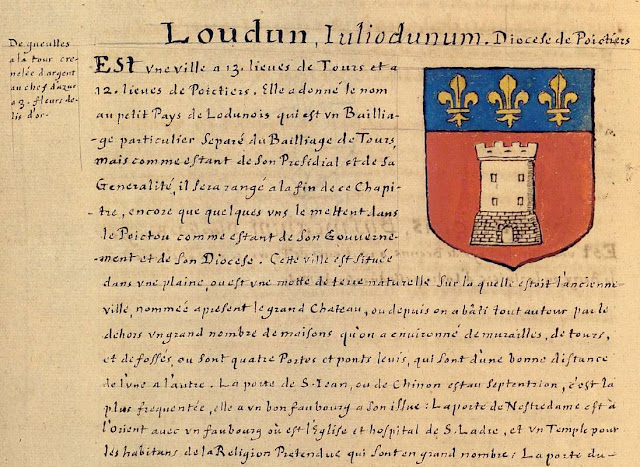 Loudun, Iuliodunum. Diocese de Poictiers
De gueulles
a la tour cre-
nelée d'argent
au chef d'azur
a 3. fleurs de-
lis d'or.
EST vne ville a 13. lieues de Tours et a
12. lieues de Poictiers. Elle a donné le nom
au petit Pays de Lodunois qui est vn Bailliа-
ge particulier separé du Bailliage de Tours,
mais comme estant de son Presidial et de sa
Generalité, il sera rangé a la fin de ce Chapi-
-tre, encore que quelques vns le mettent dans
le Poictou comme estant de son Gouverne-
-ment et de son Diocese. Cette ville est située
dans vne plaine, ou est vne motte de terre naturelle sur la quelle estoit l'ancienne
ville, nommée apresent le grand Chateau, ou depuis on a bâti tout autour par le
dehors vn grand nombre de maisons qu'on a environné de murailles, de tours,
et de fossés, ou sont quatre Portes et ponts levis, qui sont d'une bonne distance
de l'vne a l'autre. La porte de S. Iean, ou de Chinon est au Septentrion, c'est la
plus frequentée, elle a vn bon faubourg a son issue: La porte de Nostredame est à
l'Orient avec vn faubourg où est l'Eglise et hospital de S. Ladre, et vn Temple pour
les habitans de la Religion Pretendue qui sont en grand nombre: La porte du-